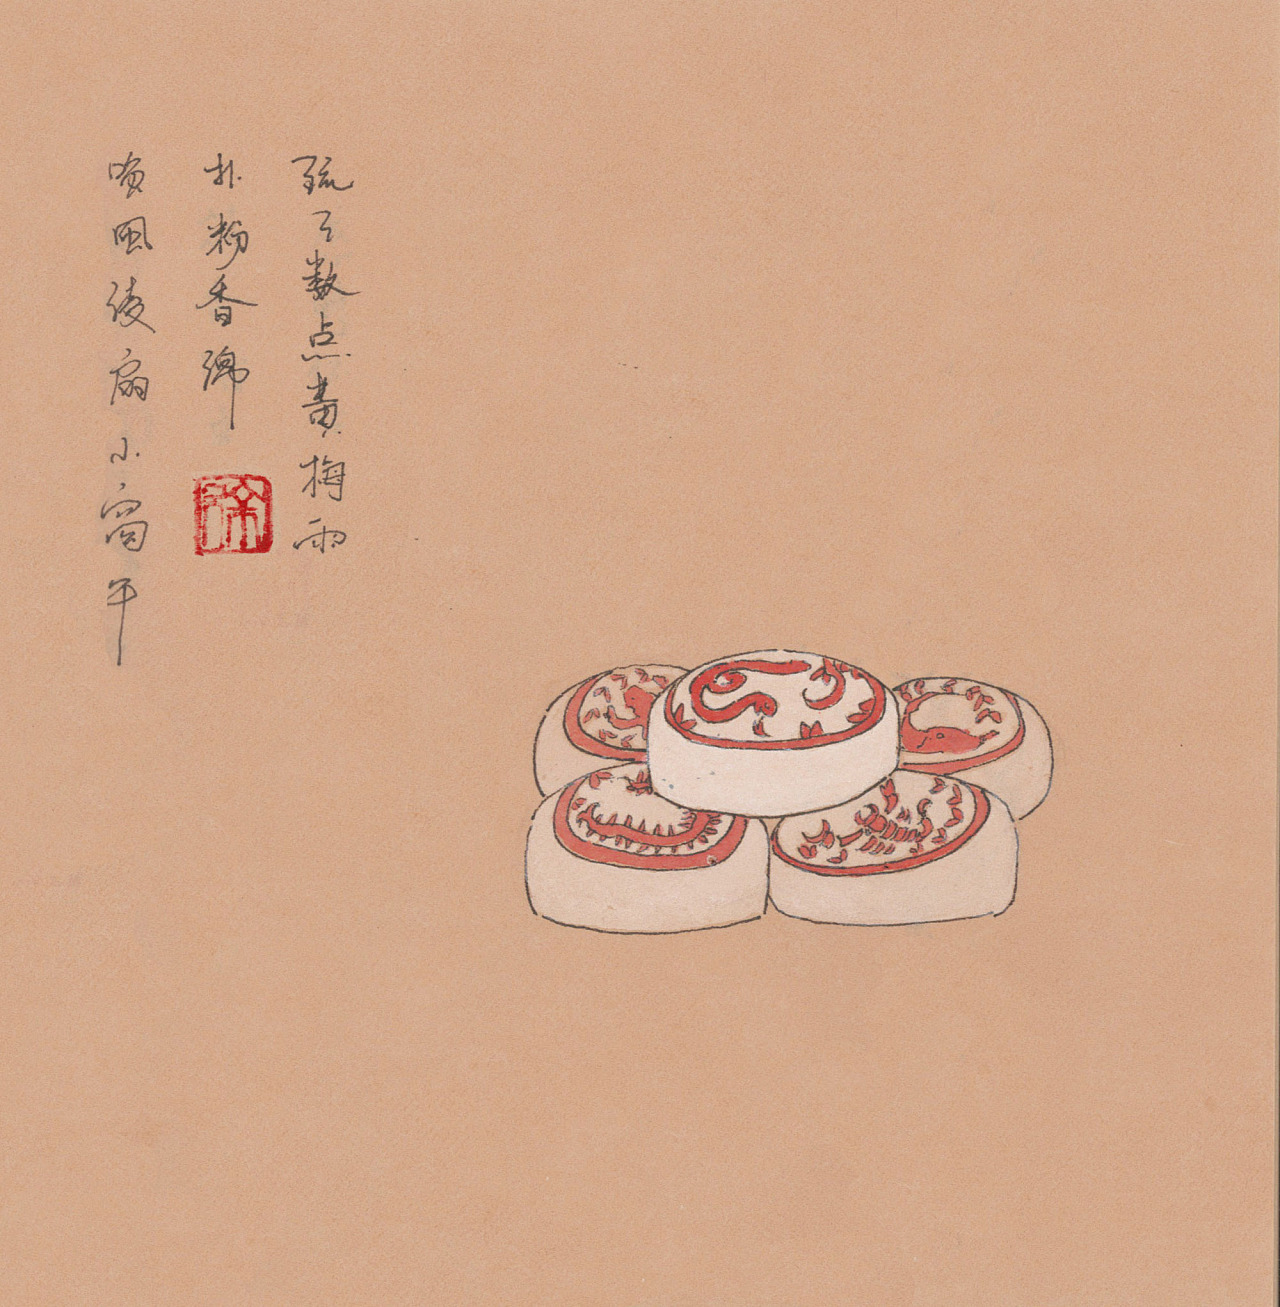 疏々数点黄梅雨
扑粉香绵
唤風绫扇小窗午